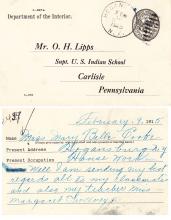 Department of the Interior.
Mr. O. H. Lipps
Supt. U. S. Indian School
Carlisle
Pennsylvania
February 9, 1915
Name Miss Mary Belle
Present Address
Present Occupation House Work
Well I am sending my best
regards all to my classmates
and also my teacher Miss
Margaret